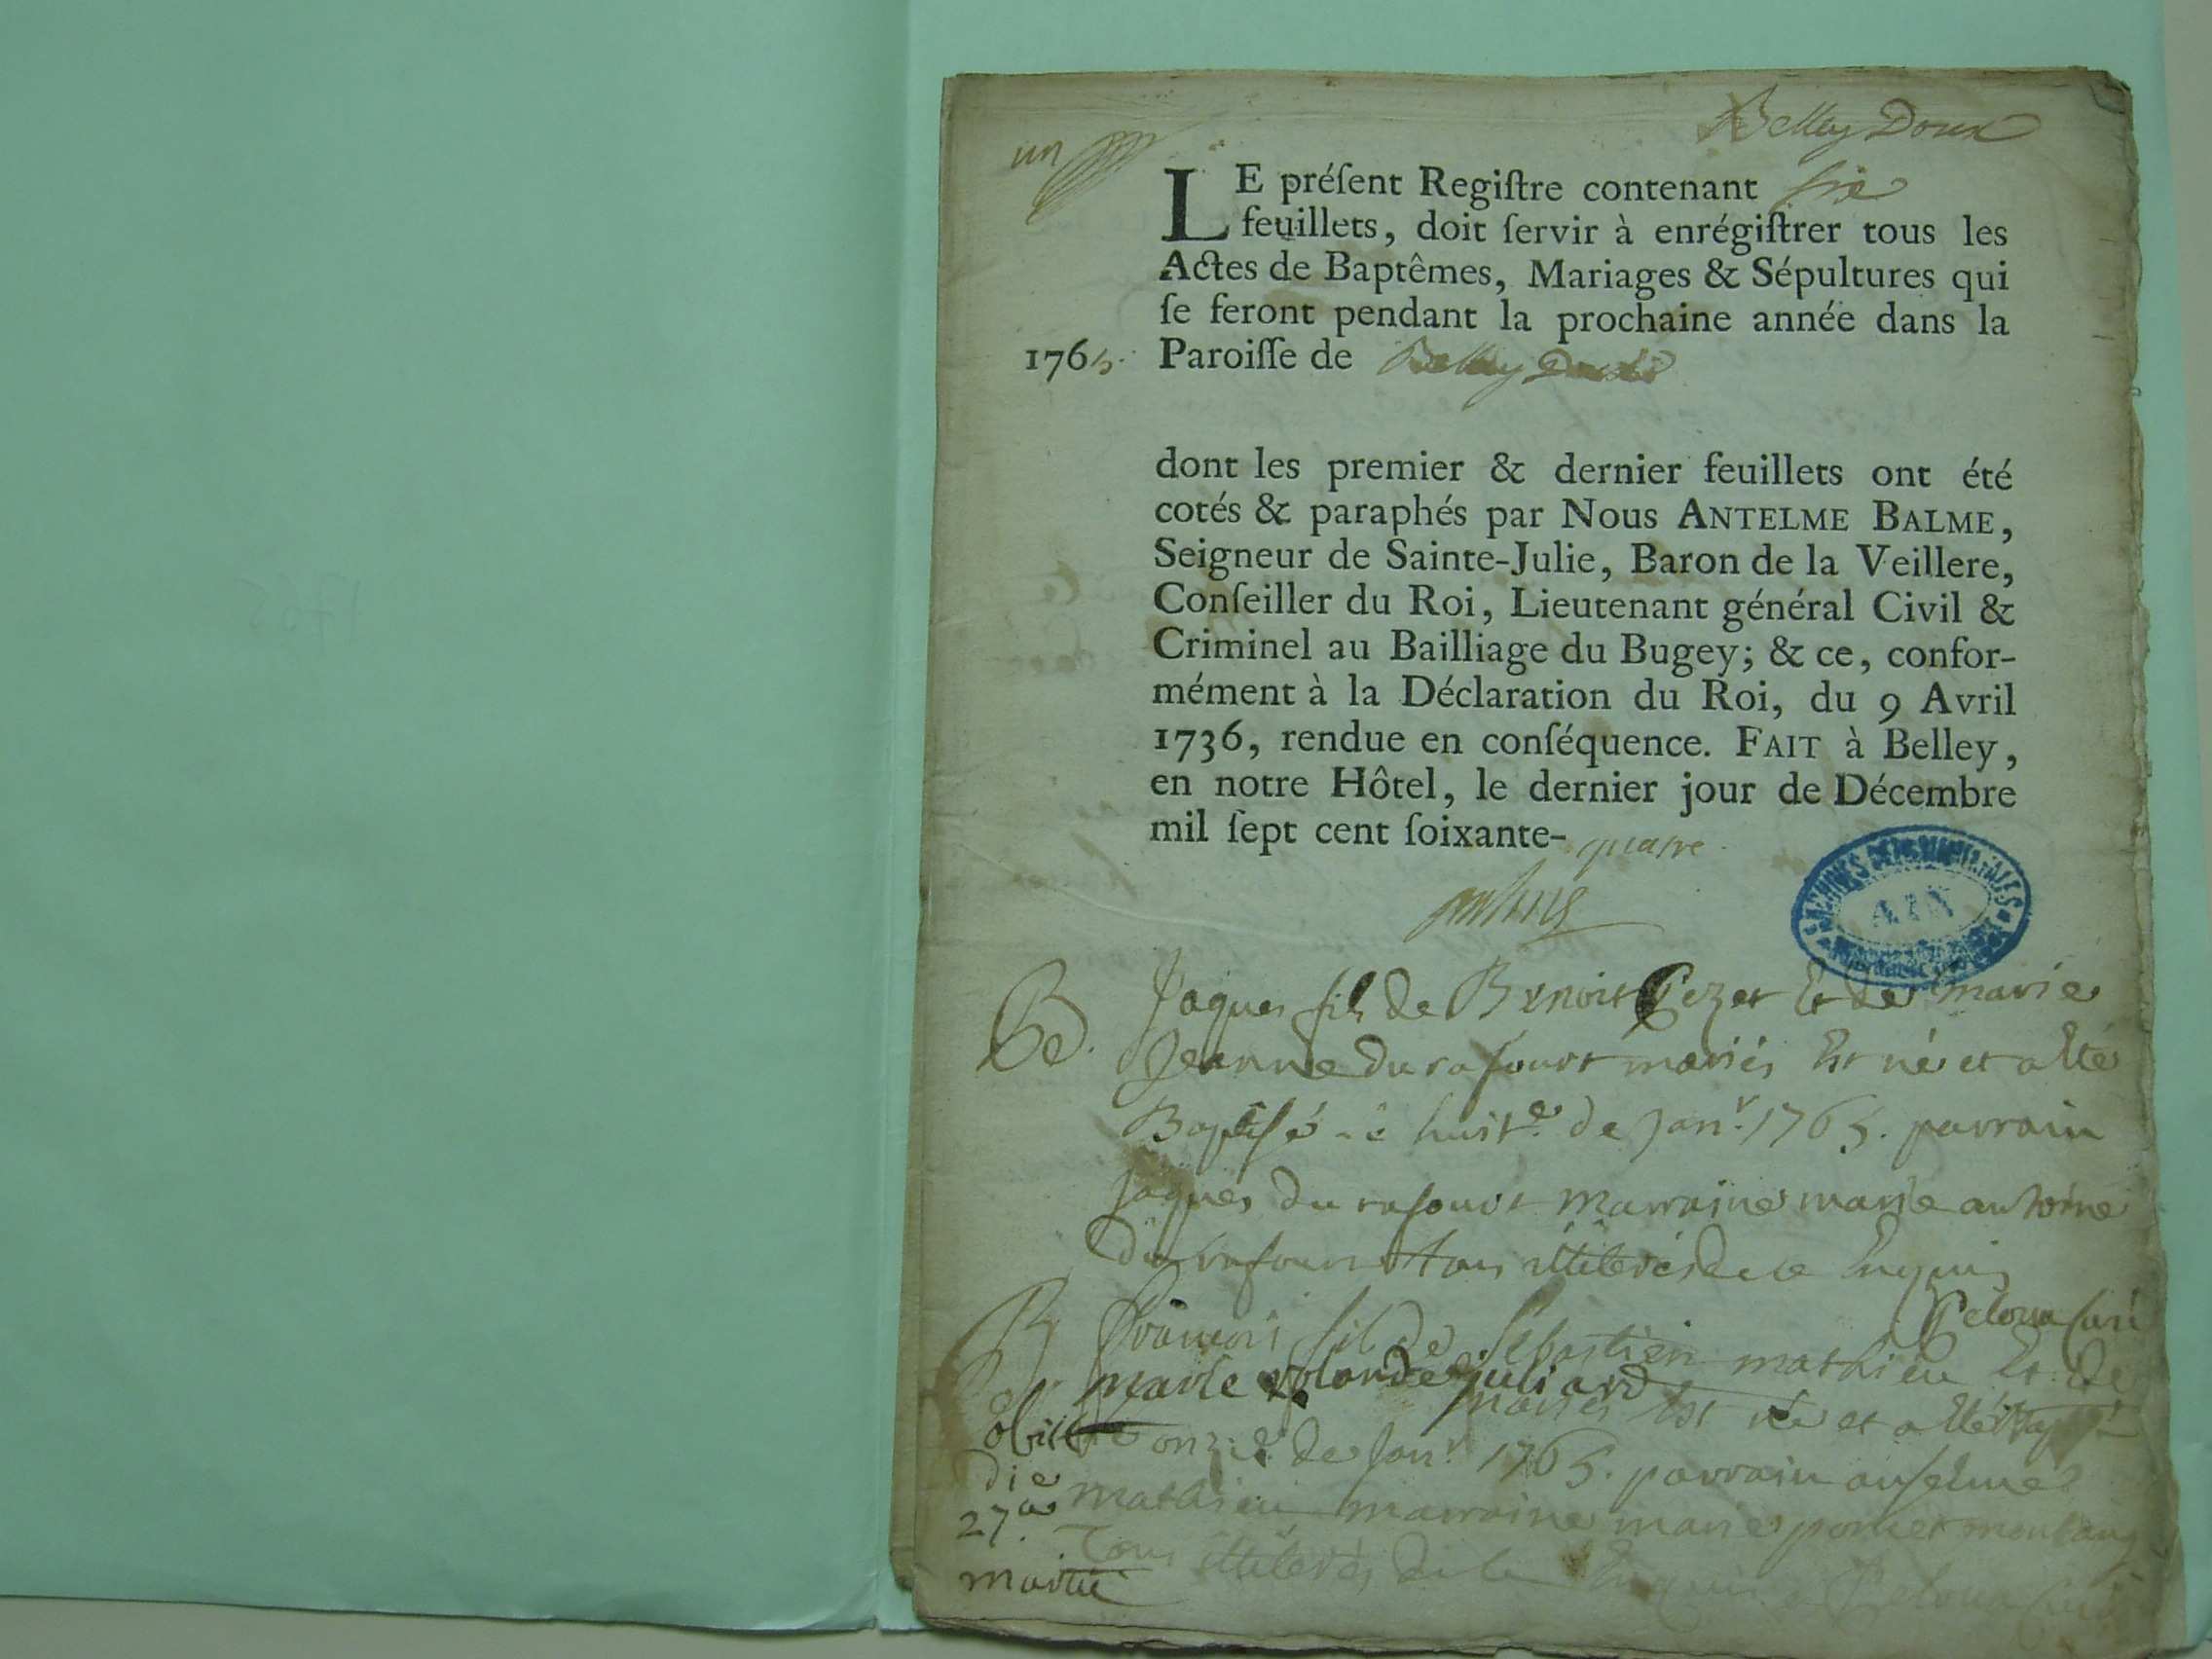 un
Belley Doux
LE préſent Regiſtre contenant six
feuillets, doit ſervir à enrégiſtrer tous les
Actes de Baptêmes, Mariages & Sépultures qui
ſe feront pendant la prochaine année dans la
1765. Paroiſſe de Belley Doux
dont les premier & dernier feuillets ont été
cotés & paraphés par Nous ANTELME BALME,
Seigneur de Sainte-Julie, Baron de la Veillere,
Conſeiller du Roi, Lieutenant général Civil &
Criminel au Bailliage du Bugey; & ce, confor-
mément à la Déclaration du Roi, du 9 Avril
1736, rendue en conſéquence. FAIT à Belley,
en notre Hôtel, le dernier jour de Décembre
mil ſept cent ſoixante-quatre.
ARCHIVES DEPARTEMENTALES
AIN
B. Jaques fils de Benoit Gezet Et de marie
Jeanne durafourt mariés Est né et a Eté
Baptisé le huit.e de Janr. 1765. parrain
Jaques durafourt marraine marie antoine
durafourt tous illiterés de ce Enquis
B François fils de Sebastien mathieu Et de
marie yolande juliard
mariés Est né et a Eté Bapsé
obiit onz.e de Janr. 1765. parrain anselme
die mathieu marraine marie
27a Tous illiterés de ce Enquis
martii
1765